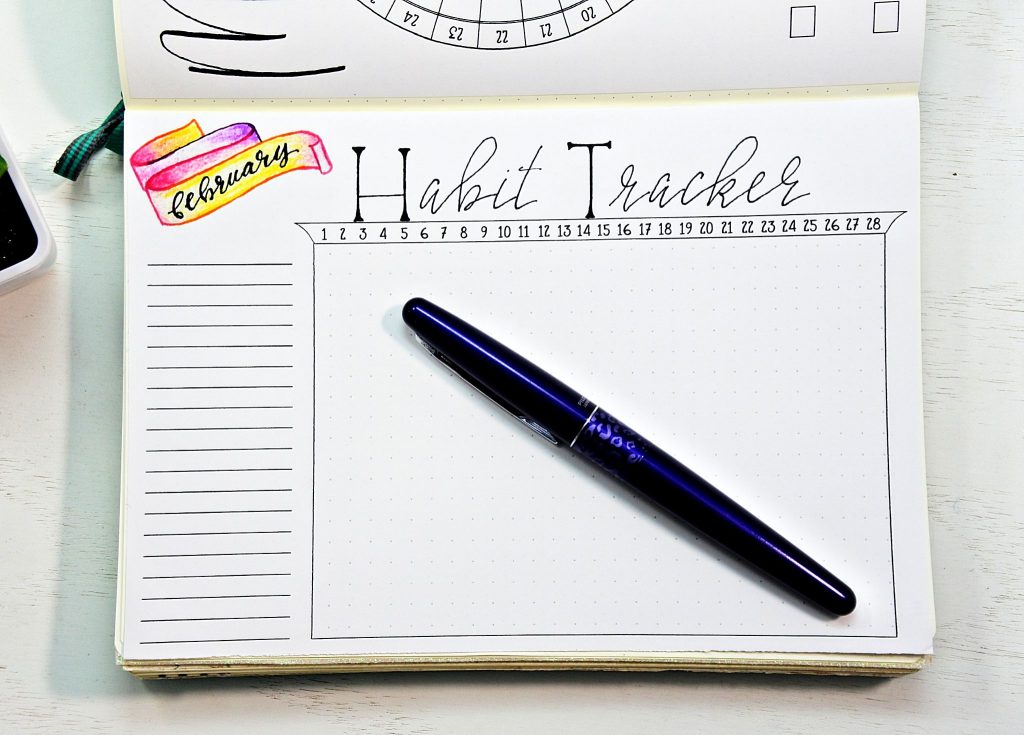 24 23 22 21 20
february
Habit Tracker
1 2 3 4 5 6 7 8 9 10 11 12 13 14 15 16 17 18 19 20 21 22 23 24 25 26 27 28